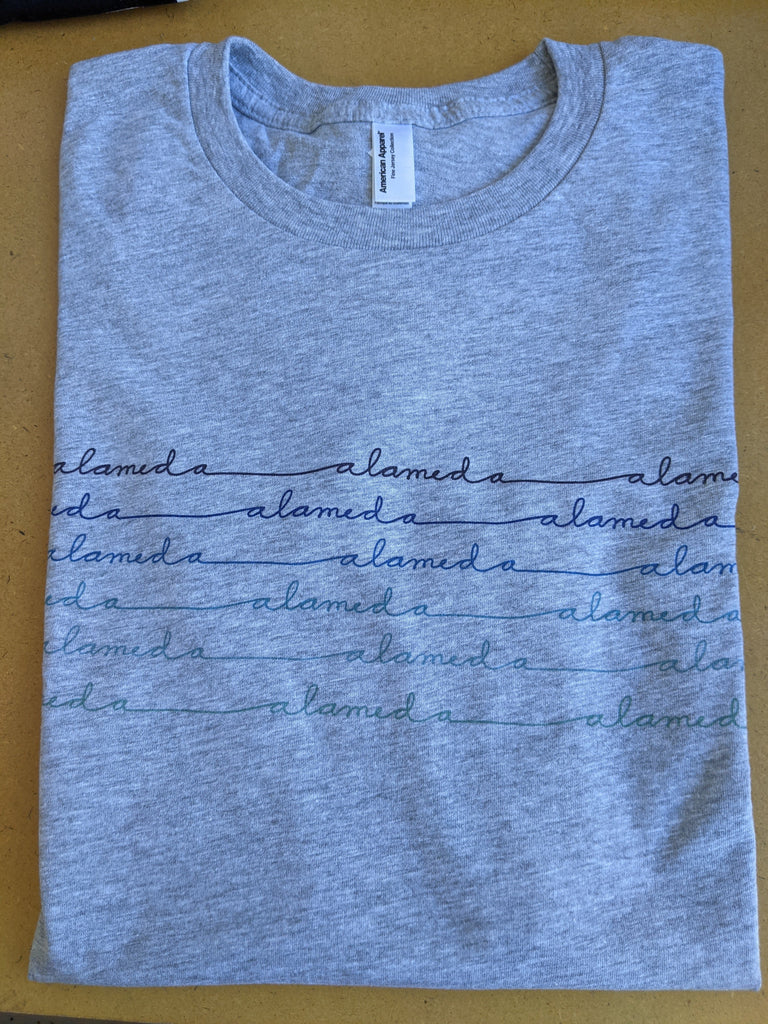 American Apparel
Fine Jersey Collection
alameda alameda alame
eda alameda alameda
alameda alameda alam
eda alameda alameda
alameda alameda ala
eda alameda alamed